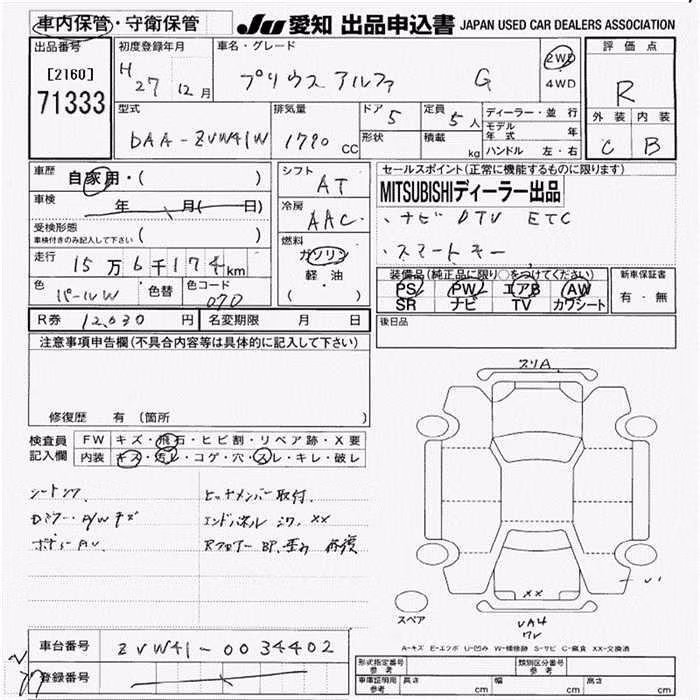 車内保管・守衛保管 JU 愛知 出品申込書 JAPAN USED CAR DEALERS ASSOCIATION
出品番号 初度登録年月 車名・グレード 2WD 4WD 評価点
[2160] 71333 H 27 12月 プリウスアルファ G R
型式 排気量 ドア 5 定員 5人 ディーラー・並行 外装 内装
DAA-ZVW41W 1790 CC 形状 積載 kg モデル年式 年 C B
ハンドル 左・右
車歴 自家用・( ) シフト AT セールスポイント(正常に機能するものに限ります)
車検 年 月( 日) 冷房 AAC MITSUBISHIディーラー出品
受検形態 車検付きのみ記入して下さい ( ) ・ナビ DTV ETC
走行 15万6千174km 燃料 ガソリン 軽油 ( ・ ) ・スマートキー
色 パールW 色替 色コード 070 装備品(純正品に限り○をつけてください) 新車保証書
PS PW エアB AW 有・無
SR ナビ TV カワシート
R券 12,030 円 名変期限 月 日 後日品
注意事項申告欄(不具合内容等は具体的に記入して下さい)
修復歴 有 (箇所 )
検査員記入欄 FW キズ・飛石・ヒビ割・リペア跡・X要
内装 キズ・汚レ・コゲ・穴・スレ・キレ・破レ
スリA
シートシワ ヒッチメンバー取付
Dマワー A/Wキズ エンドパネル シワ、XX
ボディーAU Rフロアー BP.歪み 修復
XX
スペア
UA4
A-キズ E-エクボ U-凹み W-補修跡 S-サビ C-腐食 XX-交換済
車台番号 ZVW41-0034402 形式指定番号 参考 類別区分番号 参考
登録番号 車庫証明用 参考 長さ cm 幅 cm 高さ cm